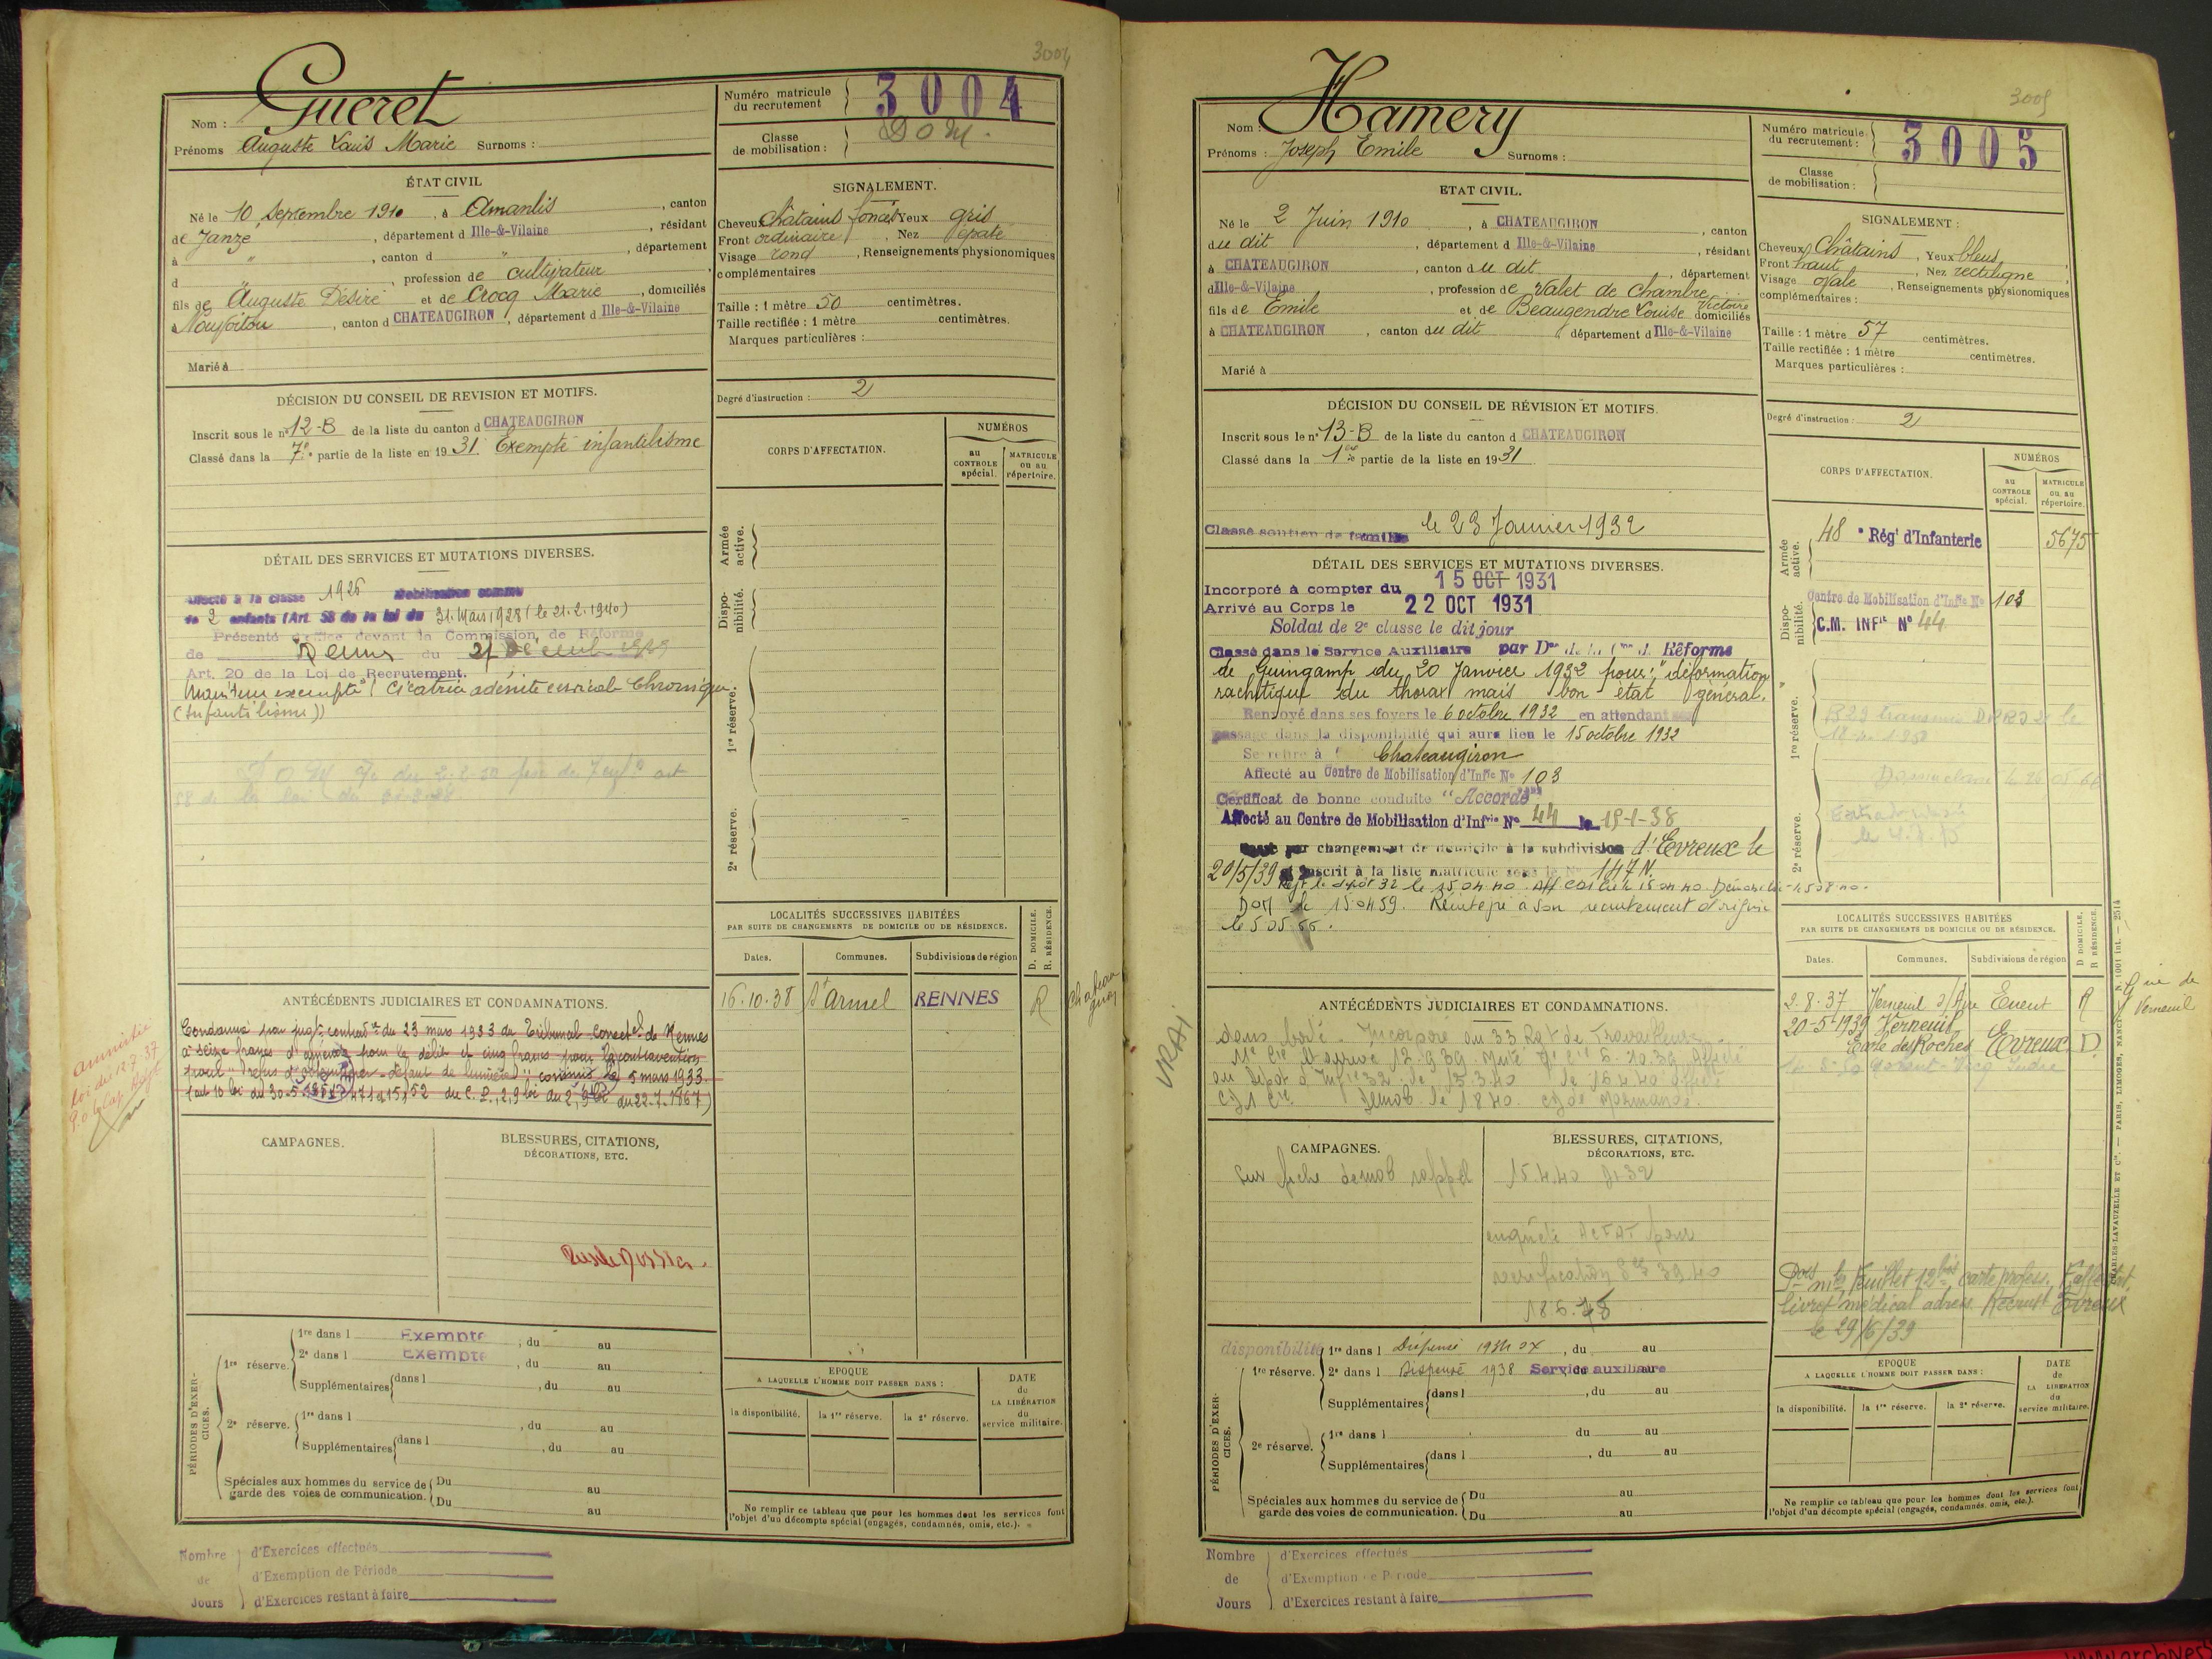 3004
Nom : Gueret
Prénoms Auguste Louis Marie Surnoms :
Numéro matricule du recrutement 3004
Classe de mobilisation :
ÉTAT CIVIL
Né le 10 Septembre 1910, à Amanlis, canton
de Janzé, département d Ille-&-Vilaine, résidant
à ", canton d ", département
d , profession de cultivateur
fils de Auguste Désiré et de Crocq Marie, domiciliés
à Nouvoitou, canton d CHATEAUGIRON, département d Ille-&-Vilaine
Marié à
SIGNALEMENT.
Cheveux Châtains foncés Yeux gris
Front ordinaire, Nez épaté
Visage rond, Renseignements physionomiques
complémentaires
Taille : 1 mètre 50 centimètres.
Taille rectifiée : 1 mètre centimètres.
Marques particulières :
Degré d'instruction : 2
DÉCISION DU CONSEIL DE REVISION ET MOTIFS.
Inscrit sous le n° 12-B de la liste du canton d CHATEAUGIRON
Classé dans la 7e partie de la liste en 1931. Exempté infantilisme
CORPS D'AFFECTATION.
NUMÉROS
au CONTROLE spécial.
MATRICULE ou au répertoire.
Armée active.
Disponibilité.
1re réserve.
2e réserve.
DÉTAIL DES SERVICES ET MUTATIONS DIVERSES.
Affecté à la classe 1926 Mobilisation comme
de 2 enfants (Art. 58 de la loi du 31 Mars 1928 (le 21.2.1940)
Présenté d'office devant la Commission de Réforme
de Rennes du
Art. 20 de la Loi de Recrutement.
Maintenu exempté Cicatrice adénite cervicale Chronique
(Infantilisme)
LOCALITÉS SUCCESSIVES HABITÉES
PAR SUITE DE CHANGEMENTS DE DOMICILE OU DE RÉSIDENCE.
Dates. Communes. Subdivisions de région D. DOMICILE. R. RÉSIDENCE.
16.10.38 St Armel RENNES R
ANTÉCÉDENTS JUDICIAIRES ET CONDAMNATIONS.
Condamné par jugt contradre du 23 mars 1933 du Tribunal correctel de Rennes
à seize francs d'amende pour le délit et cinq francs pour la contravention
défaut de lumière commis le 5 mars 1933.
amnistie
loi du 12-7-37
CAMPAGNES.
BLESSURES, CITATIONS, DÉCORATIONS, ETC.
PÉRIODES D'EXERCICES.
1re réserve. 1re dans l Exempté, du au
2e dans l Exempté, du au
Supplémentaires dans l , du au
2e réserve. 1re dans l , du au
Supplémentaires dans l , du au
Spéciales aux hommes du service de garde des voies de communication. Du au
Du au
EPOQUE
A LAQUELLE L'HOMME DOIT PASSER DANS :
la disponibilité. la 1re réserve. la 2e réserve.
DATE de LA LIBÉRATION du service militaire.
Ne remplir ce tableau que pour les hommes dont les services font
l'objet d'un décompte spécial (engagés, condamnés, omis, etc.).
Nombre de Jours
d'Exercices effectués
d'Exemption de Période
d'Exercices restant à faire
3005
Nom : Hamery
Prénoms : Joseph Emile Surnoms :
Numéro matricule du recrutement : 3005
Classe de mobilisation :
ETAT CIVIL.
Né le 2 Juin 1910, à CHATEAUGIRON, canton
du dit, département d Ille-&-Vilaine, résidant
à CHATEAUGIRON, canton du dit, département
d Ille-&-Vilaine, profession de Valet de chambre
fils de Emile et de Beaugendre Louise Victoire domiciliés
à CHATEAUGIRON, canton du dit, département d Ille-&-Vilaine
Marié à
SIGNALEMENT :
Cheveux Châtains, Yeux bleus,
Front haut, Nez rectiligne
Visage ovale, Renseignements physionomiques
complémentaires :
Taille : 1 mètre 57 centimètres.
Taille rectifiée : 1 mètre centimètres.
Marques particulières :
Degré d'instruction : 2
DÉCISION DU CONSEIL DE RÉVISION ET MOTIFS.
Inscrit sous le n° 13-B de la liste du canton d CHATEAUGIRON
Classé dans la 1re partie de la liste en 1931
Classé soutien de famille le 23 Janvier 1932
CORPS D'AFFECTATION.
NUMÉROS
au CONTROLE spécial.
MATRICULE ou au répertoire.
Armée active. 48e Régt d'Infanterie 5675
Disponibilité. Centre de Mobilisation d'Infie No 103
C.M. INFie No 44
1re réserve.
2e réserve.
DÉTAIL DES SERVICES ET MUTATIONS DIVERSES.
Incorporé à compter du 15 OCT 1931
Arrivé au Corps le 22 OCT 1931
Soldat de 2e classe le dit jour
Classé dans le Service Auxiliaire par Don de la Con de Réforme
de Guingamp du 20 Janvier 1932 pour : "déformation
rachitique du thorax mais bon état général.
Renvoyé dans ses foyers le 6 octobre 1932 en attendant son
passage dans la disponibilité qui aura lieu le 15 octobre 1932
Se retire à Chateaugiron
Affecté au Centre de Mobilisation d'Infie No 103
Certificat de bonne conduite "Accordé"
Affecté au Centre de Mobilisation d'Infrie No 44 le 19-1-38
Passé par changement de domicile à la subdivision d'Evreux le
20/5/39 et inscrit à la liste matricule sous le No 147 N.
le 15.04.59. Réintégré à son recrutement d'origine
LOCALITÉS SUCCESSIVES HABITÉES
PAR SUITE DE CHANGEMENTS DE DOMICILE OU DE RÉSIDENCE.
Dates. Communes. Subdivisions de région D DOMICILE. R RÉSIDENCE.
2.8.37 Verneuil s/Avre R
20-5-1939 Verneuil Ecole des Roches Evreux D
ANTÉCÉDENTS JUDICIAIRES ET CONDAMNATIONS.
Incorporé au 33 Rgt de Travailleurs
VRAI
CAMPAGNES.
Sur fiche démob rappel
BLESSURES, CITATIONS, DÉCORATIONS, ETC.
15.4.40
livret médical adress. Recrust Evreux
le 29/6/39
PÉRIODES D'EXERCICES.
disponibilité 1re dans l Dispensé, du au
1re réserve. 2e dans l Dispensé 1938 Service auxiliaire
Supplémentaires dans l , du au
2e réserve. 1re dans l du au
Supplémentaires dans l , du au
Spéciales aux hommes du service de garde des voies de communication. Du au
Du au
EPOQUE
A LAQUELLE L'HOMME DOIT PASSER DANS :
la disponibilité. la 1re réserve. la 2e réserve.
DATE de LA LIBÉRATION du service militaire.
Ne remplir ce tableau que pour les hommes dont les services font
l'objet d'un décompte spécial (engagés, condamnés, omis, etc.).
CHARLES-LAVAUZELLE ET Cie. — PARIS, LIMOGES, NANCY
Nombre de Jours
d'Exercices effectués
d'Exemption de Période
d'Exercices restant à faire